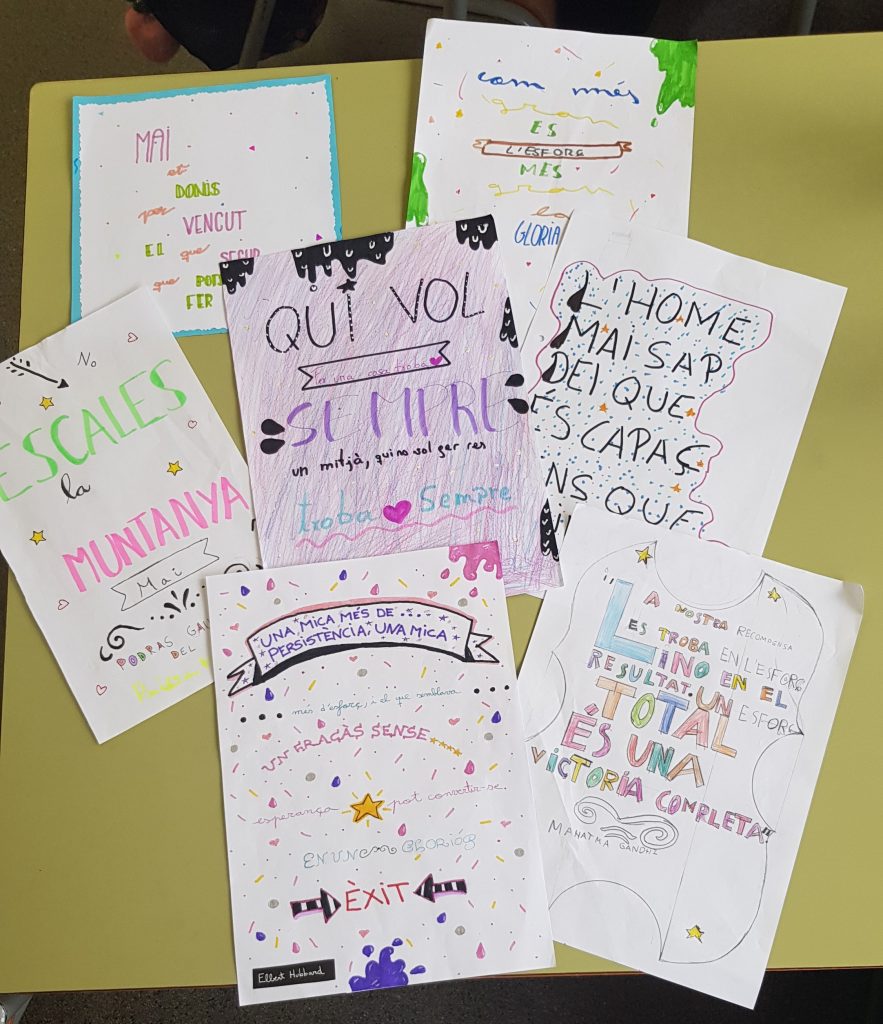 MAI
et
DONIS
per
VENCUT
EL que SEGUR
que POTS
FER
com més
gran
ES
L'ESFORÇ
MÉS
gran
ES
GLORIA
No
ESCALES
la
MUNTANYA
Mai
PODRAS
DEL
QUI VOL
Fer una cosa troba
SEMPRE
un mitjà, qui no vol fer res
troba Sempre
L'HOME
MAI SAP
DEL QUE
ÉS CAPAÇ
NS QUE
UNA MICA MÉS DE ....
PERSISTÈNCIA, UNA MICA
... més d'esforç, i el que semblava ...
UN FRAGÀS SENSE
esperança pot convertir-se.
EN UN GLORIÓS
ÈXIT
Elbert Hubbard
"LA NOSTRA RECOMOENSA
ES TROBA EN L'ESFORÇ
I NO EN EL
RESULTAT. UN ESFORÇ
TOTAL
ÉS UNA
VICTORIA COMPLETA"
MAHATMA GANDHI